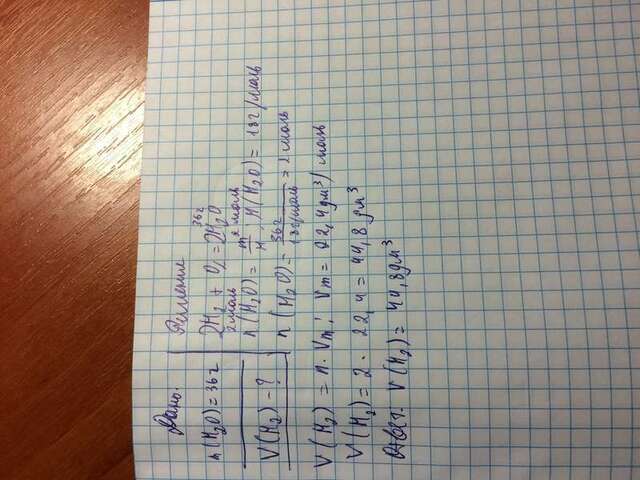 Дано:
m(H2O)=36г
V(H2)-?
Решение
36г
2H2 + O2 = 2H2O
2моль 2моль
n(H2O)= m/M, M(H2O)= 18г/моль
n(H2O)= 36г/18г/моль = 2моль
V(H2) = n · Vm; Vm = 22,4дм³/моль
V(H2)= 2 · 22,4 = 44,8 дм³
Ответ. V(H2)= 44,8дм³